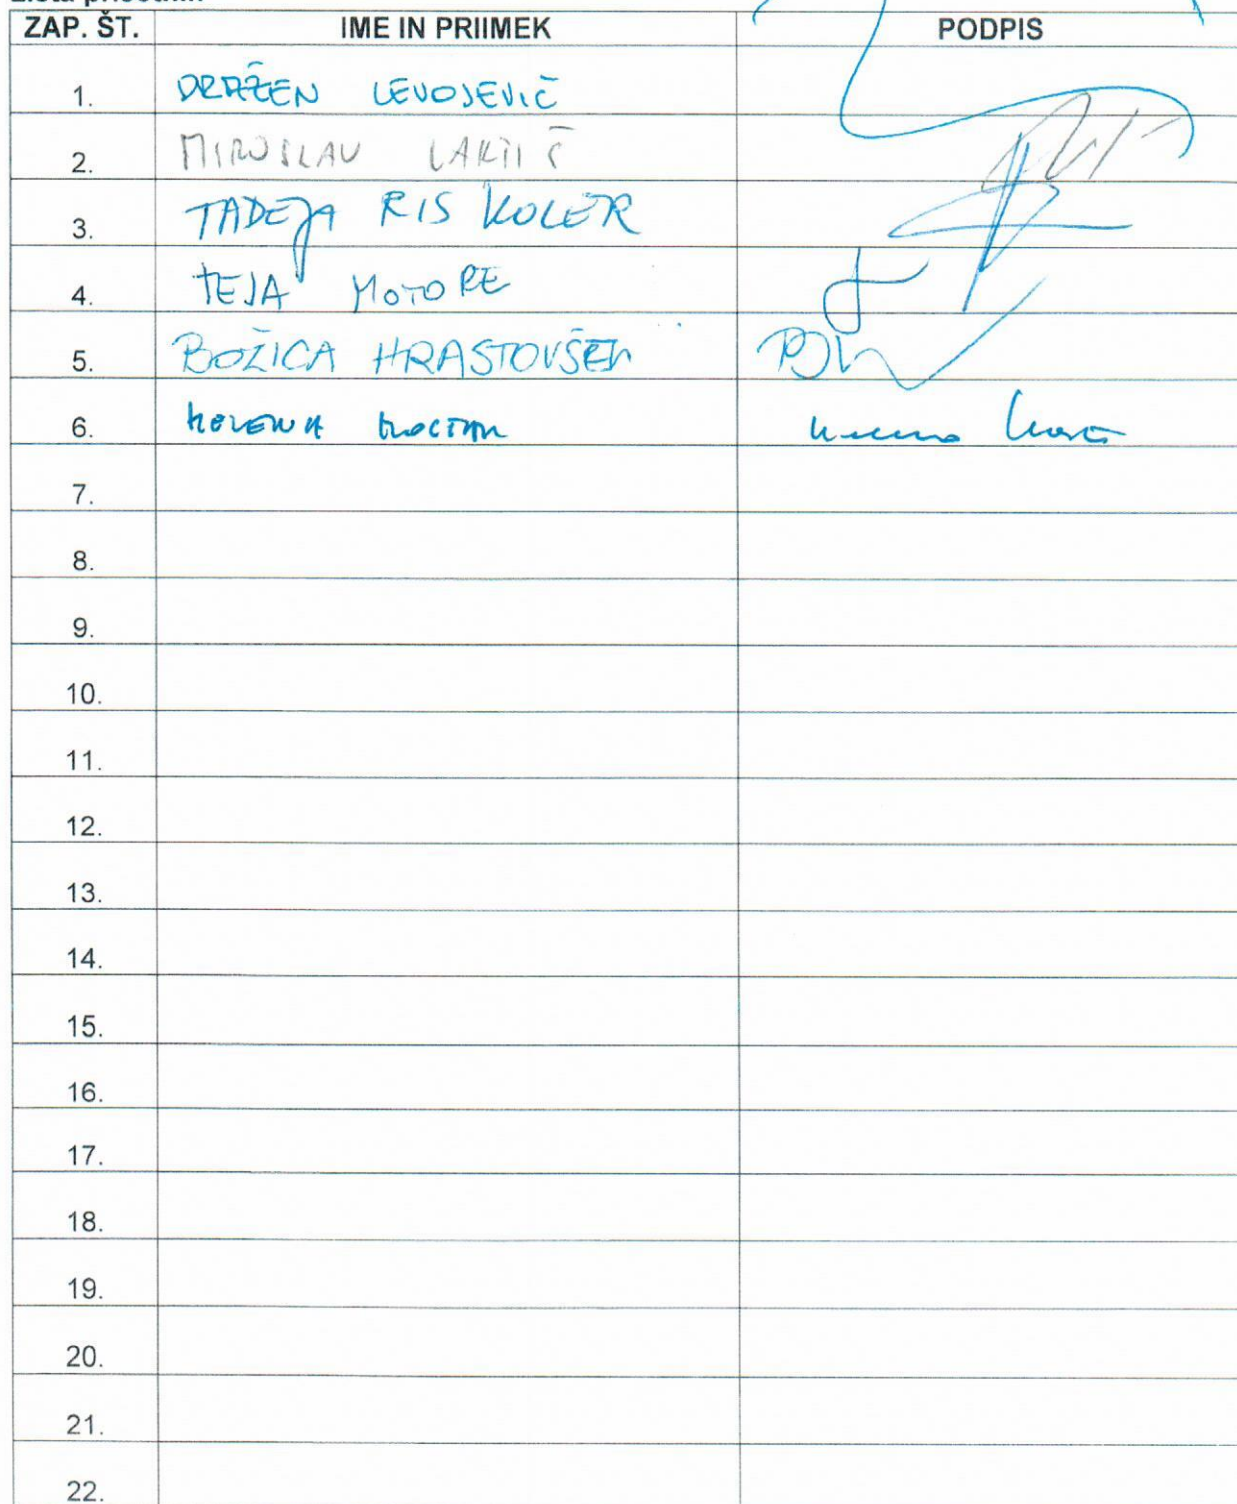 ZAP. ŠT. IME IN PRIIMEK PODPIS
1. DRAŽEN LEVOJEVIČ
2. MIROSLAV LAKTIČ
3. TADEJA RIS KOLER
4. TEJA MOTORE
5. BOŽICA HRASTOVŠEK
6.
7.
8.
9.
10.
11.
12.
13.
14.
15.
16.
17.
18.
19.
20.
21.
22.